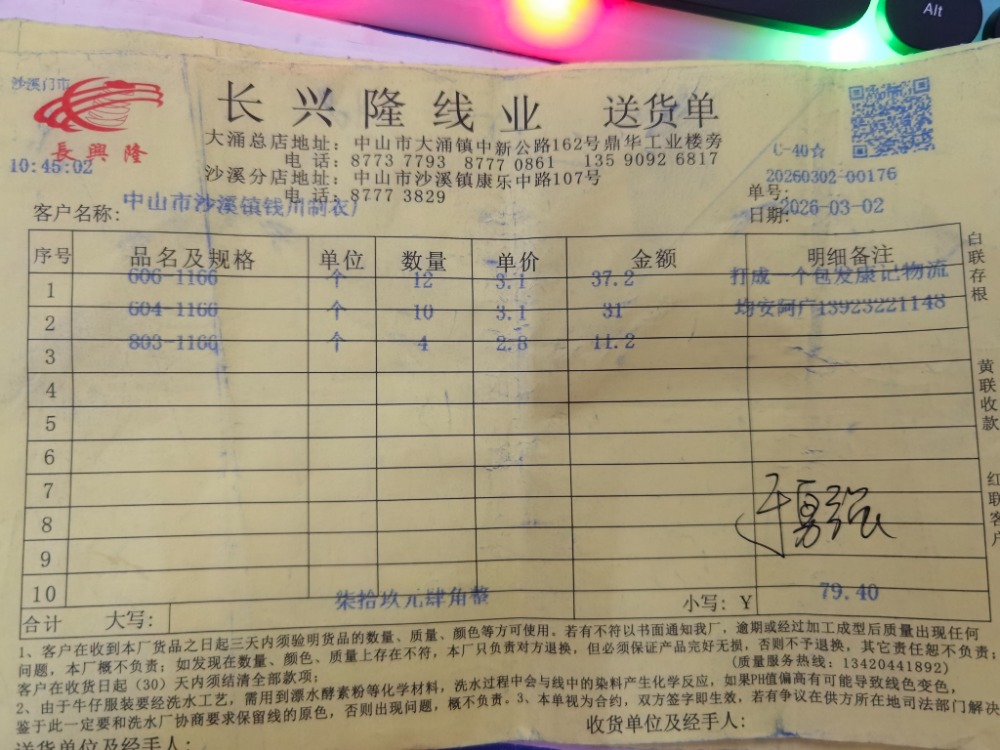 Alt
沙溪门市
長興隆
10:45:02
长兴隆线业 送货单
大涌总店地址：中山市大涌镇中新公路162号鼎华工业楼旁
电话：8773 7793 8777 0861 135 9092 6817
沙溪分店地址：中山市沙溪镇康乐中路107号
电话：8777 3829
C-40☆
单号：20260302-00176
日期：2026-03-02
客户名称：中山市沙溪镇钱川制衣厂
序号 品名及规格 单位 数量 单价 金额 明细备注
1 606-1166 个 12 3.1 37.2 打成一个包发康记物流
2 604-1166 个 10 3.1 31 均安阿广13923221148
3 803-1166 个 4 2.8 11.2
4
5
6
7
8
9
10
于勇强
合计 大写：柒拾玖元肆角整 小写：Y 79.40
白联存根
黄联收款
红联客户
1、客户在收到本厂货品之日起三天内须验明货品的数量、质量、颜色等方可使用。若有不符以书面通知我厂，逾期或经过加工成型后质量出现任何
问题，本厂概不负责；如发现在数量、颜色、质量上存在不符，本厂只负责对方退换，但必须保证产品完好无损，否则不予退换，其它责任恕不负责；
(质量服务热线：13420441892)
客户在收货日起（30）天内须结清全部款项；
2、由于牛仔服装要经洗水工艺，需用到漂水酵素粉等化学材料，洗水过程中会与线中的染料产生化学反应，如果PH值偏高有可能导致线色变色，
鉴于此一定要和洗水厂协商要求保留线的原色，否则出现问题，概不负责。3、本单视为合约，双方签字即生效，若有争议在供方所在地司法部门解决
送货单位及经手人： 收货单位及经手人：